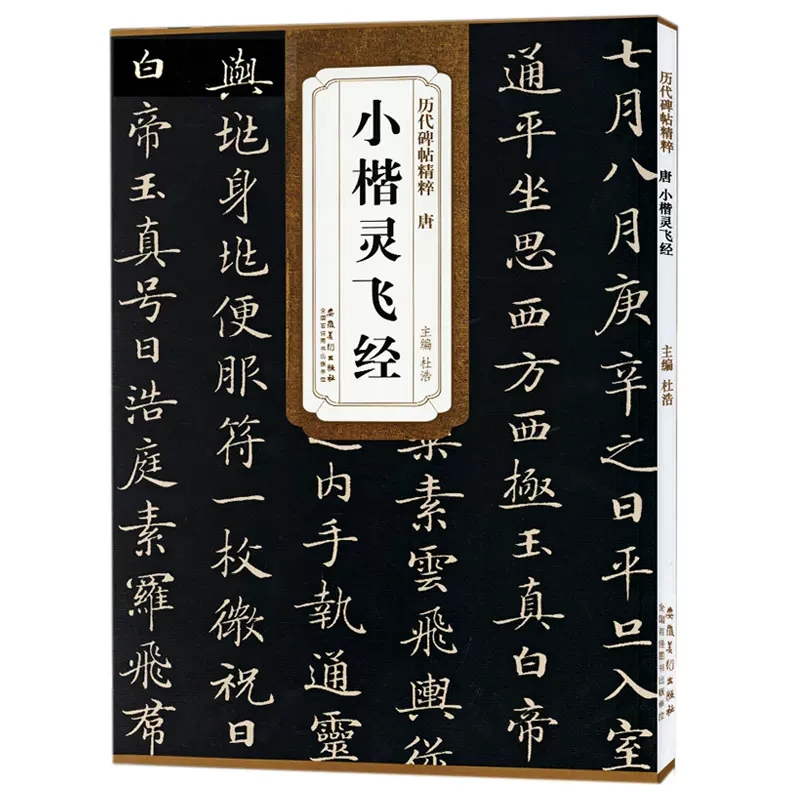 历代碑帖精粹 唐 小楷灵飞经
主编 杜浩
安徽美术出版社
全国百佳图书出版单位
七月八月庚辛之日平旦入室
通平坐思西方西極玉真白帝
历代碑帖精粹 唐
主编 杜浩
小楷灵飞经
安徽美术出版社
全国百佳图书出版单位
素雲飛輿從
内手執通靈
與兆身兆便服符一枚微祝曰
白帝玉真号曰浩庭素羅飛帬